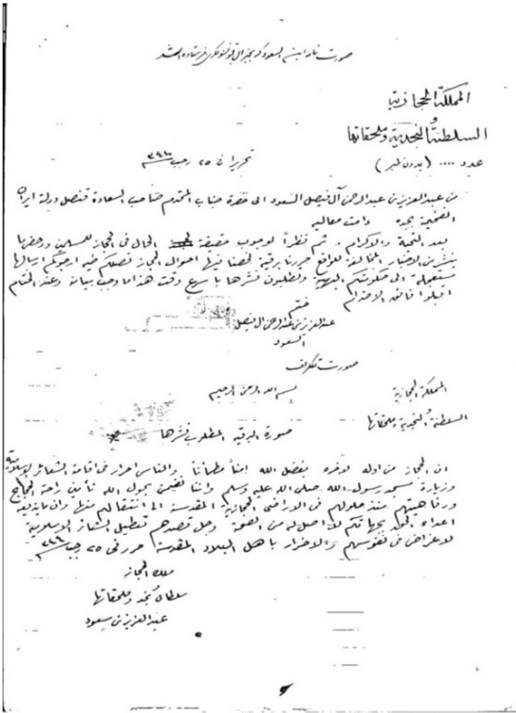 صورت نامه ابن السعود که بجنرال قونسولگری فرستاده شد
المملكة الحجازية
السلطنة النجدية وملحقاتها
عدد .... (بدون نمبر)
تحريرا في ٢٥ رجب ٣٤٤
من عبدالعزيز بن عبدالرحمن آل فيصل السعود الى حضرة جناب المحترم صاحب السعادة قنصل دولة ايران
الفخيمة بجده دامت معاليه
بعد التحية والاكرام، ثم نظراً لوجوب حقيقة الحال في الحجاز للمسلمين ورحضا
الاخبار المخالفة للواقع حررنا برقية لخصنا فيها احوال الحجاز تصلكم طيه ارجوكم ارسالها
مستعجلة الى حكومتكم البهية وتطلبون نشرها باسرع وقت هذا ما وجب بيانه وعند الختام
اقبلوا فائق الاحترام
ختم
عبدالعزيز بن عبدالرحمن ال فيصل
السعود
صورت تلگراف
بسم الله الرحمن الرحيم
المملكة الحجازية
السلطنة النجدية وملحقاتها
صورة البرقية المطلوب نشرها
ان الحجاز من اوله لاخره بفضل الله امناً مطمئناً والناس احرار في اقامة الشعائر الاسلامية
وزيارة مسجد رسول الله صلى الله عليه وسلم واننا نضمن بحول الله تأمين راحة الحجاج
ورفاهيتهم منذ حلولهم في الاراضي الحجازية المقدسة الى انتقالهم منها وان ما يذيعه
اعداء لا اصل له من الصحة وجل قصدهم تعطيل الشعائر الاسلامية
لاغراض في نفوسهم والاضرار باهل البلاد المقدسة حرر في ٢٥ رجب ٣٤٤
ملك الحجاز
سلطان نجد وملحقاتها
عبدالعزيز بن سعود